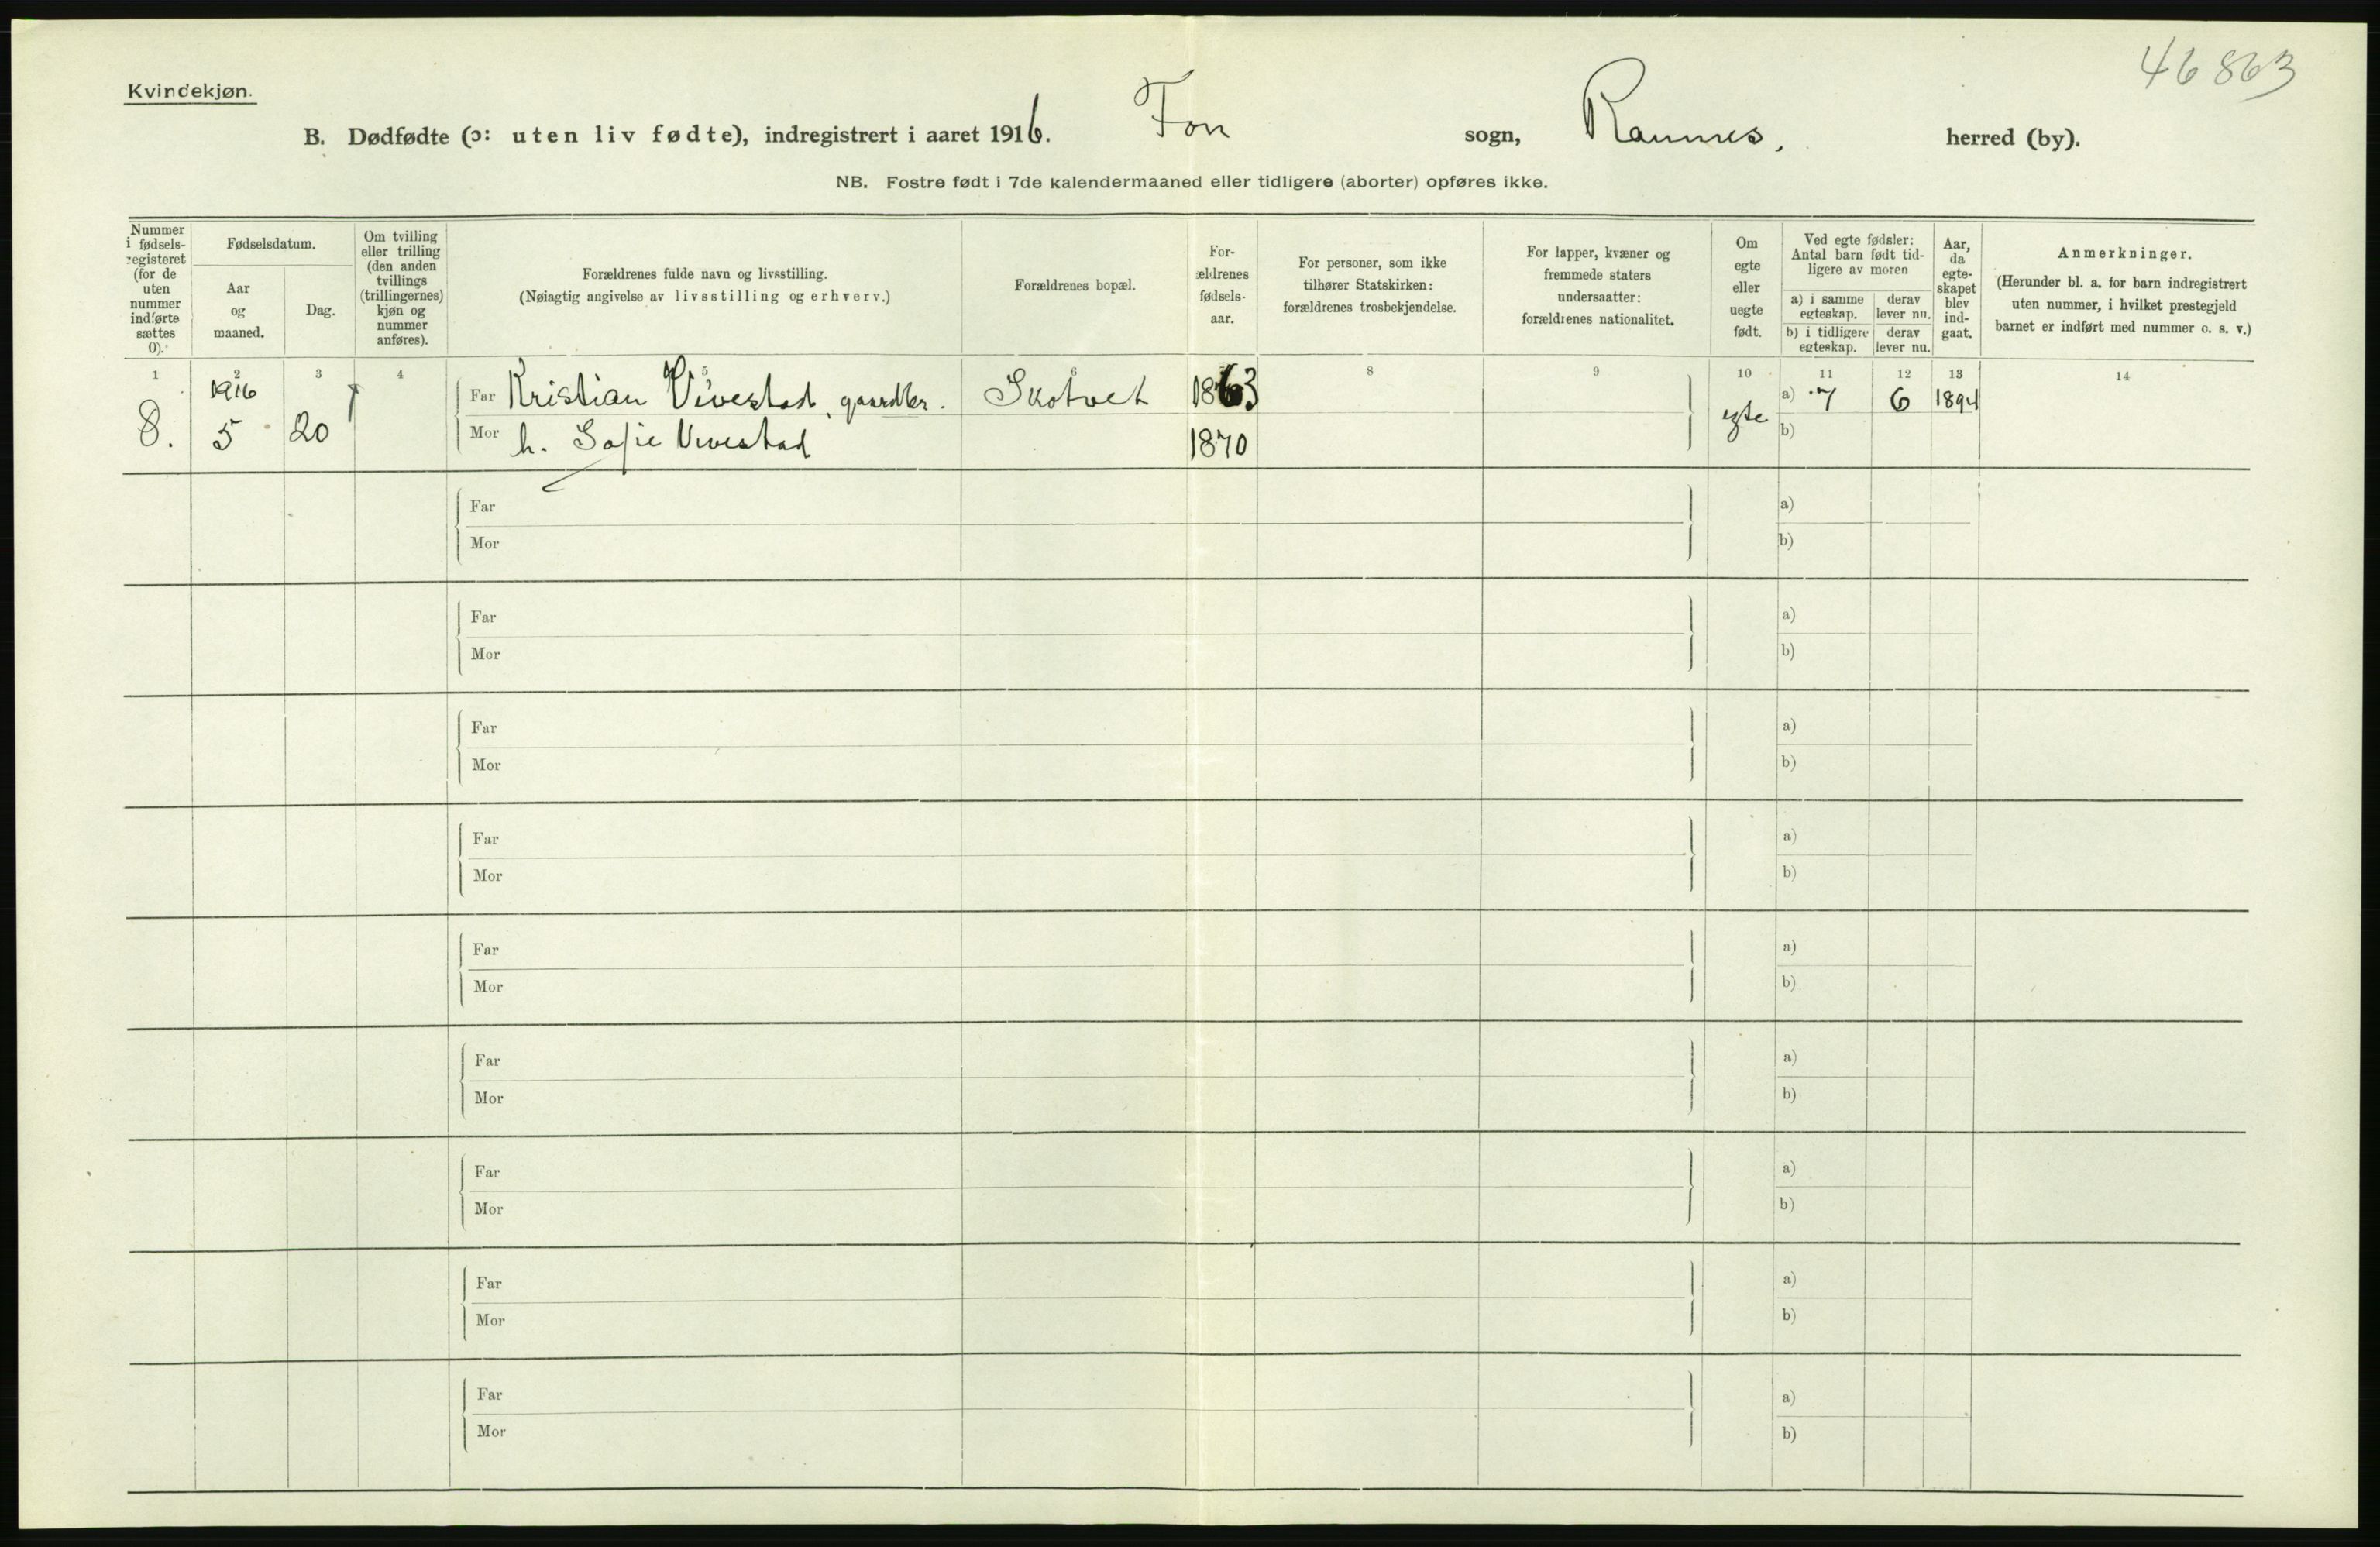 46863
Kvindekjøn.
B. Dødfødte (ɔ: uten liv fødte), indregistrert i aaret 1916. Fon sogn, Ramnes, herred (by).
NB. Fostre født i 7de kalendermaaned eller tidligere (aborter) opføres ikke.
Nummer i fødsels-registeret (for de uten nummer indførte sættes 0).
Fødselsdatum.
Aar og maaned.
Dag.
Om tvilling eller trilling (den anden tvillings (trillingernes) kjøn og nummer anføres).
Forældrenes fulde navn og livsstilling.
(Nøiagtig angivelse av livsstilling og erhverv.)
Forældrenes bopæl.
For-ældrenes fødsels-aar.
For personer, som ikke tilhører Statskirken: forældrenes trosbekjendelse.
For lapper, kvæner og fremmede staters undersaatter: forældrenes nationalitet.
Om egte eller uegte født.
Ved egte fødsler: Antal barn født tid-ligere av moren
a) i samme egteskap. derav lever nu.
b) i tidligere egteskap. derav lever nu.
Aar, da egte-skapet blev ind-gaat.
Anmerkninger.
(Herunder bl. a. for barn indregistrert uten nummer, i hvilket prestegjeld barnet er indført med nummer o. s. v.)
1 2 3 4 5 6 8 9 10 11 12 13 14
1916
8. 5 20
Far Kristian Vivestad, gaardbr. Skotvet 1863 egte a) 7 6 1894
Mor h. Sofie Vivestad 1870 b)
Far a)
Mor b)
Far a)
Mor b)
Far a)
Mor b)
Far a)
Mor b)
Far a)
Mor b)
Far a)
Mor b)
Far a)
Mor b)
Far a)
Mor b)
Far a)
Mor b)